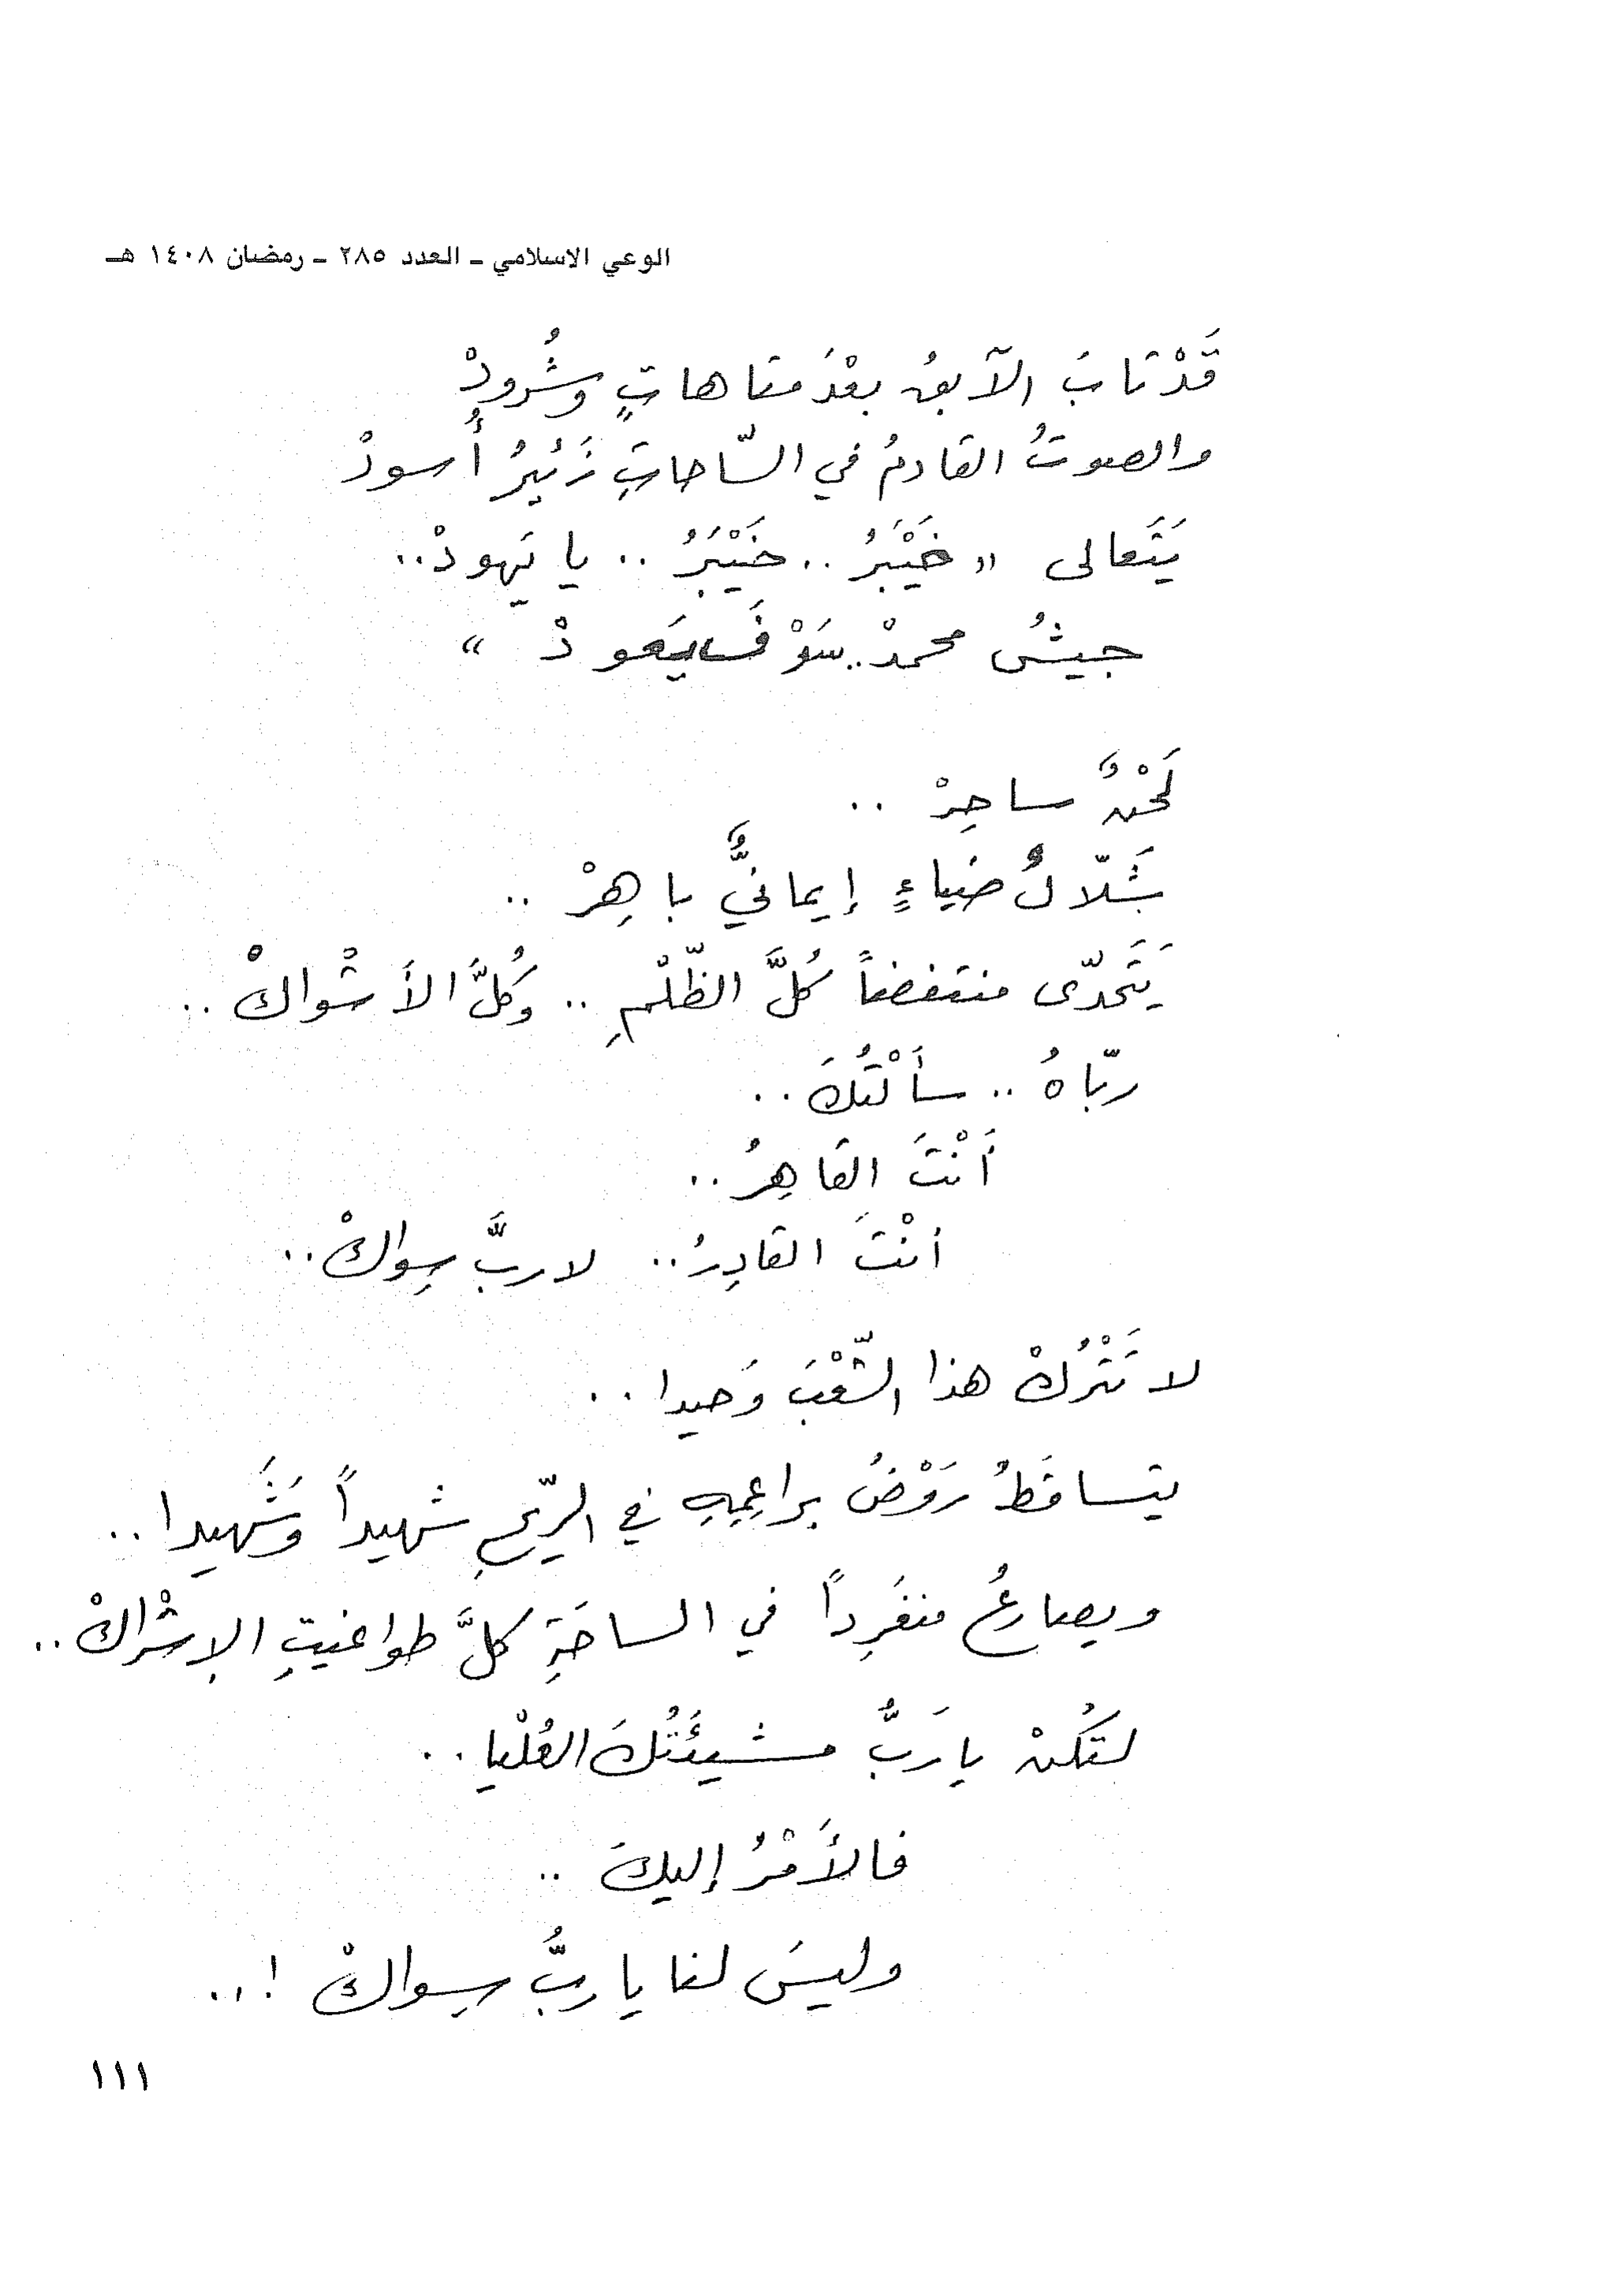 الوعي الاسلامي ـ العدد ٢٨٥ ـ رمضان ١٤٠٨ هـ
قَدْ تابَ الآبقُ بعْدَ متاهاتٍ وشُرودْ
والصوتُ القادمُ في السّاحاتِ زَئيرُ أُسودْ
يَتَعالى « خَيْبَرُ .. خَيْبَرُ .. يا يَهودْ..
جيشُ محمدْ.. سَوْفَ يَعودْ »
لَحْنٌ ساحِرْ ..
شَلّالُ ضياءٍ إيمانيٌّ باهِرْ ..
يَتَحدّى منتفضاً كُلَّ الظّلْمِ .. وكُلَّ الأَشْواكْ ..
ربّاهُ .. سأَلْتُكَ ..
أَنْتَ القاهِرُ ..
أنْتَ القادِرُ .. لا ربَّ سِواكْ ..
لا تَتْرُكْ هذا الشّعْبَ وَحيدا ..
يتساقَطُ رَوْضُ براعِمِهِ في الرّيحِ شهيداً وَشَهيدا ..
ويصارعُ منفَرِداً في الساحَةِ كلَّ طواغيتِ الإشْراكْ ..
لتَكُنْ يا رَبُّ مشيئَتُكَ العُلْيا ..
فالأَمْرُ إليكَ ..
وليسَ لنا يا ربُّ سِواكْ !..
١١١